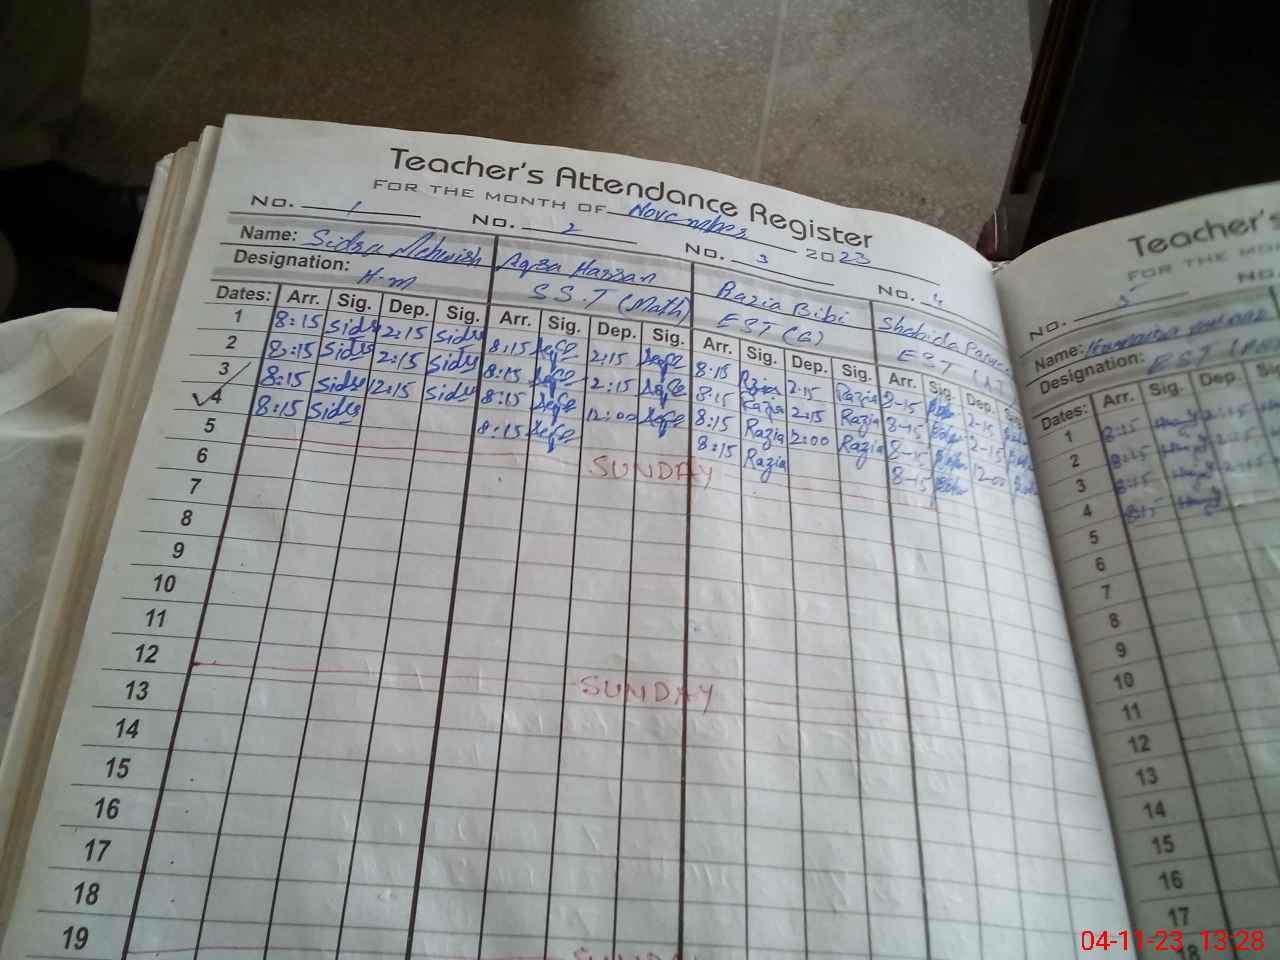 Teacher's Attendance Register
FOR THE MONTH OF November 2023
No. 1 No. 2 No. 3 No. 4
Name: Sidra Mehwish Aqsa Hassan Razia Bibi Shahida
Designation: H.M S.S.T (Math) EST (G) EST
Dates: Arr. Sig. Dep. Sig. Arr. Sig. Dep. Sig. Arr. Sig. Dep. Sig. Arr. Sig. Dep.
1 8:15 Sidra 2:15 Sidra 8:15 2:15 8:15 Razia 2:15 Razia 8-15 2-15
2 8:15 Sidra 2:15 Sidra 8:15 2:15 8:15 Razia 2:15 Razia 8-15 2-15
3 8:15 Sidra 12:15 Sidra 8:15 12:00 8:15 Razia 12:00 Razia 8-15 12-00
4 8:15 Sidra 8:15 8:15 Razia 8-15
5 SUNDAY
6
7
8
9
10
11
12 SUNDAY
13
14
15
16
17
18
19 SUNDAY
Teacher's
FOR THE MO
No. 5 No.
Name:
Designation: EST
Dates: Arr. Sig. Dep.
1 8:15 2:15
2 8:15 2:15
3 8:15
4 8:15
5
6
7
8
9
10
11
12
13
14
15
16
17
18
04-11-23 13:28